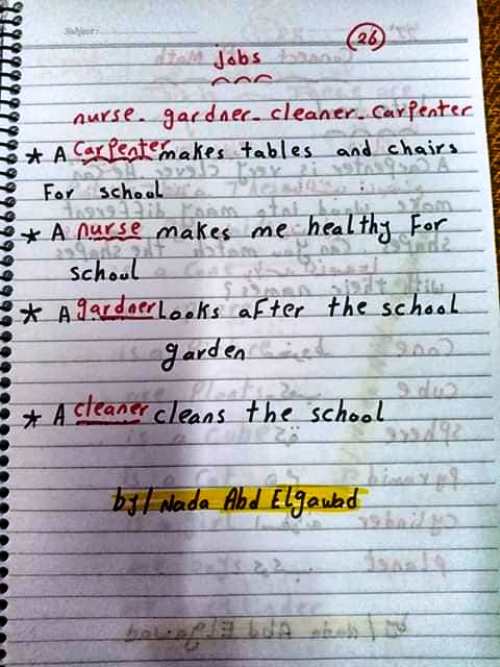 Subject:
26
jobs
nurse- gardner- cleaner- carpenter
* A Carpenter makes tables and chairs
For school
* A nurse makes me healthy For
school
* A gardner Looks after the school
garden
* A cleaner cleans the school
by/ Nada Abd Elgawad